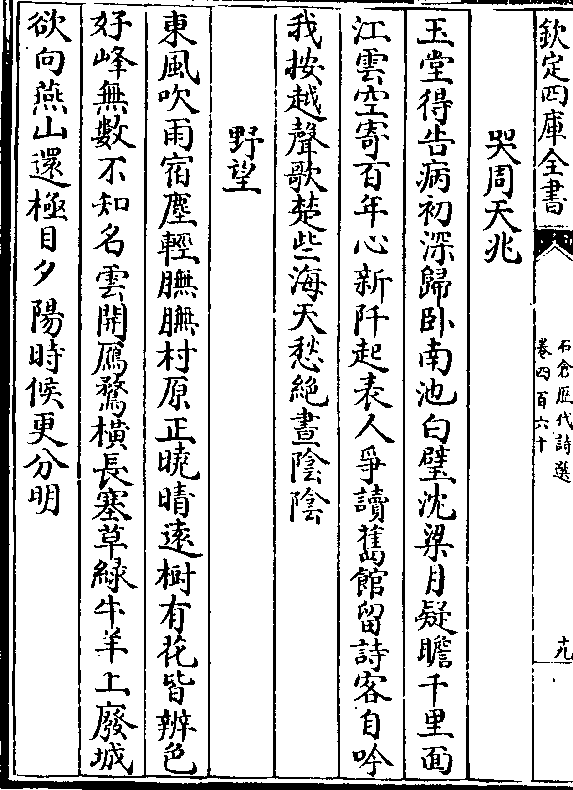 欽定四庫全書
石倉歷代詩選
卷四百六十
十九
哭周天兆
玉堂得告病初深歸卧南池白璧沈梁月疑瞻千里面
江雲空寄百年心新阡起表人爭讀舊館留詩客自吟
我按越聲歌楚些海天愁絶晝陰陰
野望
東風吹雨宿塵輕膴膴村原正曉晴遠樹有花皆辨色
好峰無數不知名雲開鴈鶩橫長塞草綠牛羊上廢城
欲向燕山還極目夕陽時候更分明